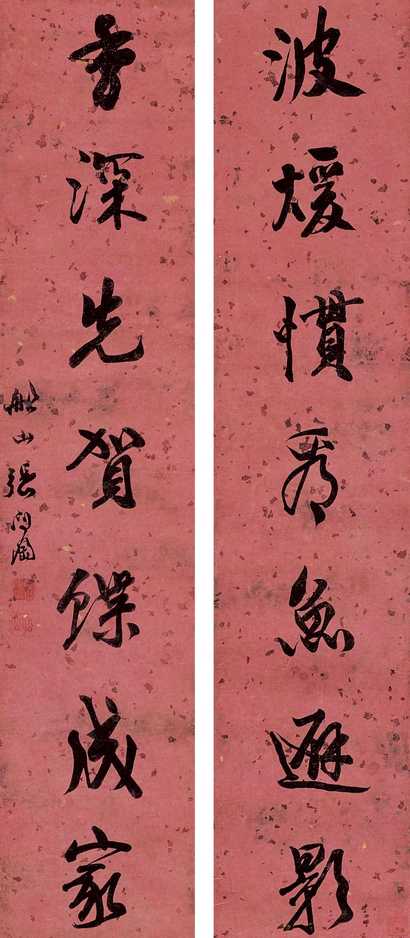 波煖慣看魚避影
深先賀蝶成家
船山張問陶